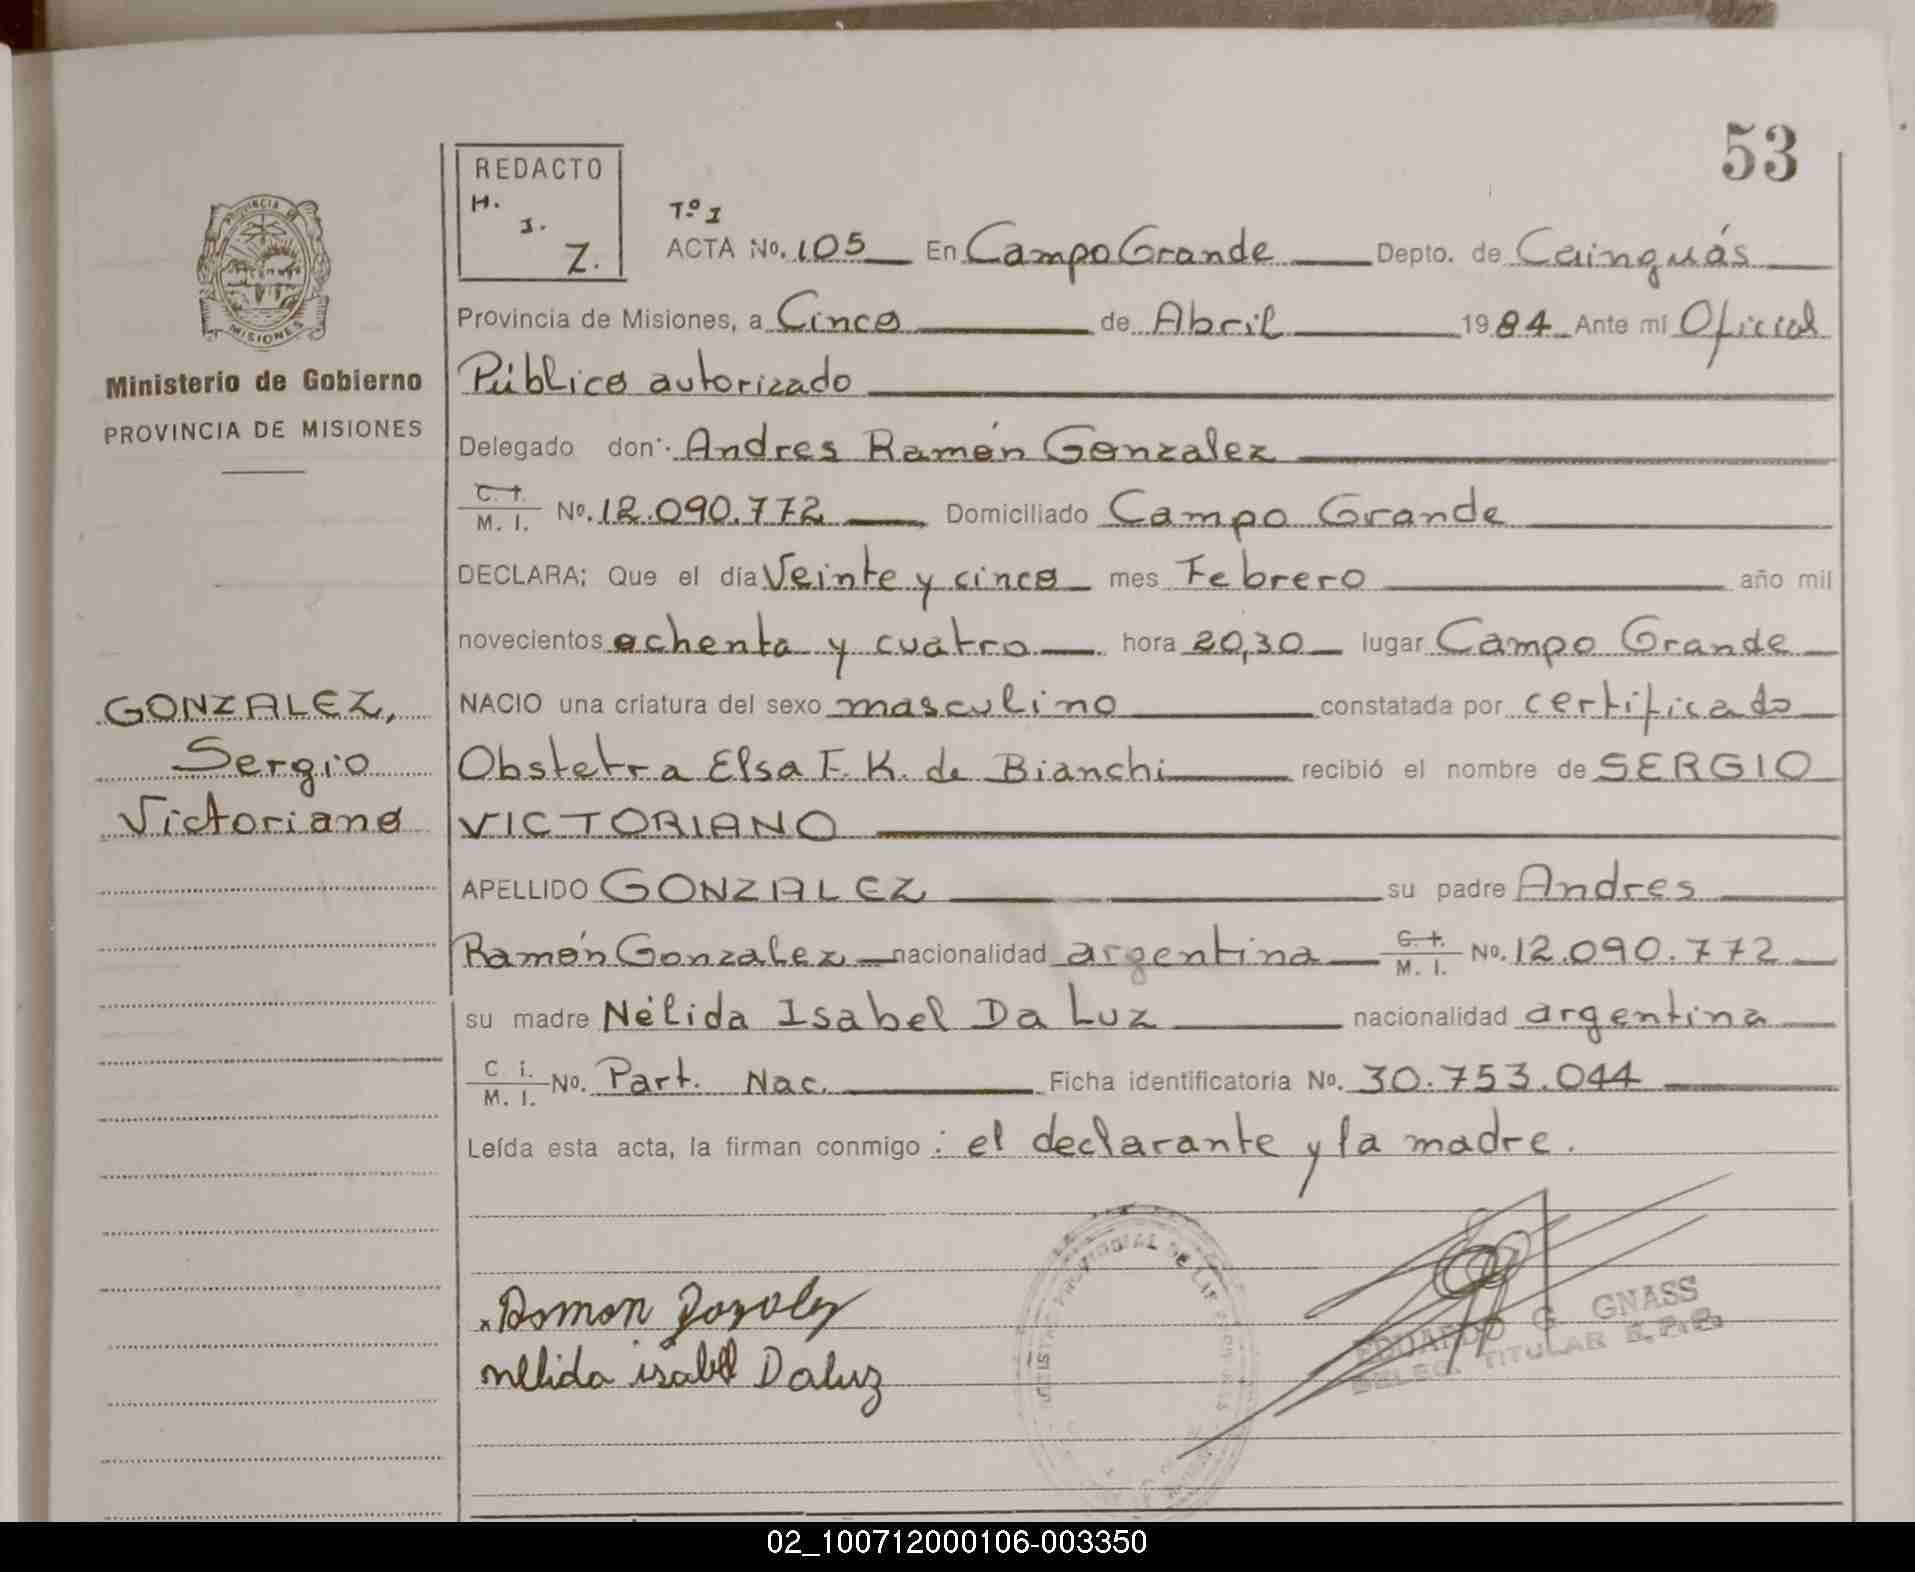 53
REDACTO
H.
J.
Z.
Tº I
ACTA No. 105 En Campo Grande Depto. de Cainguás
Provincia de Misiones, a Cinco de Abril 1984 Ante mi Oficial
Público autorizado
Delegado don: Andres Ramón Gonzalez
C. I.
M. I. No. 12.090.772 Domiciliado Campo Grande
DECLARA; Que el día Veinte y cinco mes Febrero año mil
novecientos ochenta y cuatro hora 20,30 lugar Campo Grande
NACIO una criatura del sexo masculino constatada por certificado
Obstetra Elsa F. K. de Bianchi recibió el nombre de SERGIO
VICTORIANO
APELLIDO GONZALEZ su padre Andres
Ramón Gonzalez nacionalidad argentina C. I. M. I. No. 12.090.772
su madre Nélida Isabel Da Luz nacionalidad argentina
C. I.
M. I. No. Part. Nac. Ficha identificatoria No. 30.753.044
Leída esta acta, la firman conmigo : el declarante y la madre.
PROVINCIA DE
MISIONES
Ministerio de Gobierno
PROVINCIA DE MISIONES
GONZALEZ,
Sergio
Victoriano
x Ramon Gozalez
nelida isabel Daluz
EDUARDO G. GNASS
DELEG. TITULAR
02_100712000106-003350